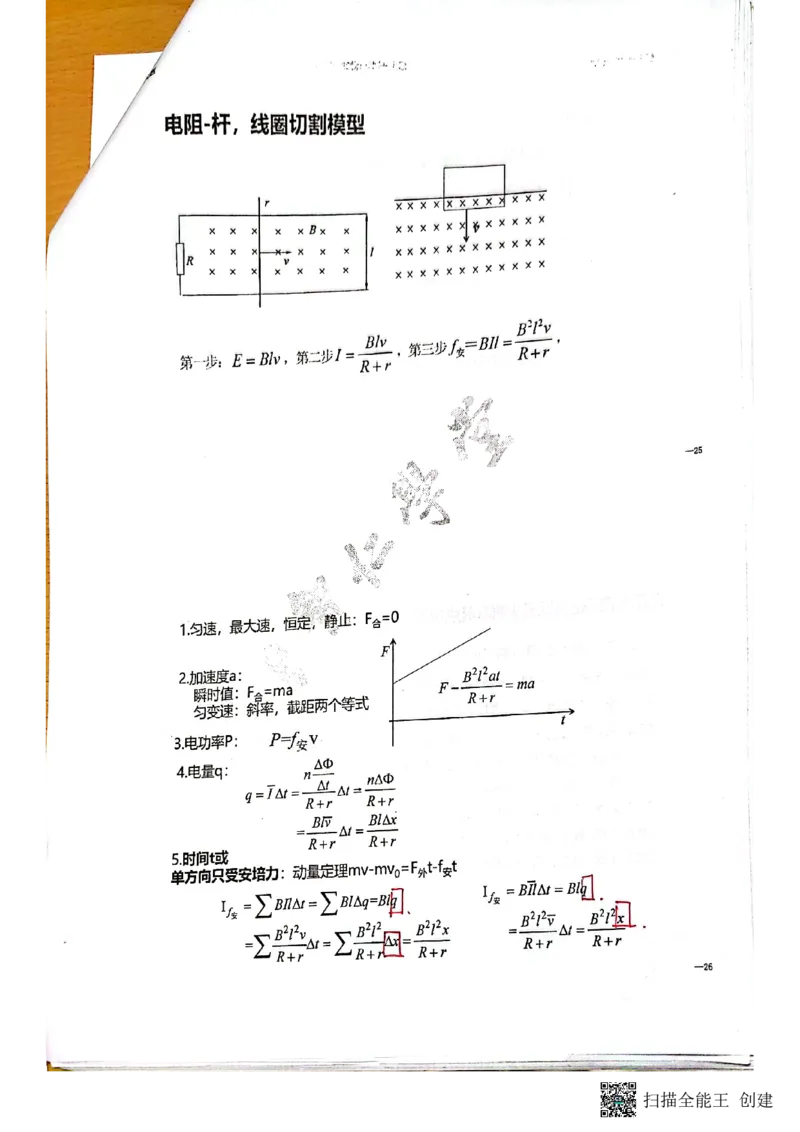 电阻-杆，线圈切割模型
r
× × × × × B × ×
R
v
l
v
第一步: E = Blv，第二步 I = Blv/(R+r)，第三步 f安=BIl = B²l²v/(R+r)，
—25
1.匀速，最大速，恒定，静止：F合=0
F
2.加速度a：
瞬时值：F合=ma
匀变速：斜率，截距两个等式
F - B²l²at/(R+r) = ma
t
3.电功率P： P=f安v
4.电量q：
q = I̅Δt = (n ΔΦ/Δt)/(R+r) Δt = nΔΦ/(R+r)
= Blv̅/(R+r) Δt = BlΔx/(R+r)
5.时间t或
单方向只受安培力：动量定理mv-mv₀=F外t-f安t
I f安 = ∑BIlΔt = ∑BlΔq=Blq
= ∑ B²l²v/(R+r) Δt = ∑ B²l²/(R+r) Δx = B²l²x/(R+r)
I f安 = BI̅lΔt = Blq
= B²l²v̅/(R+r) Δt = B²l²x/(R+r)
—26
扫描全能王 创建